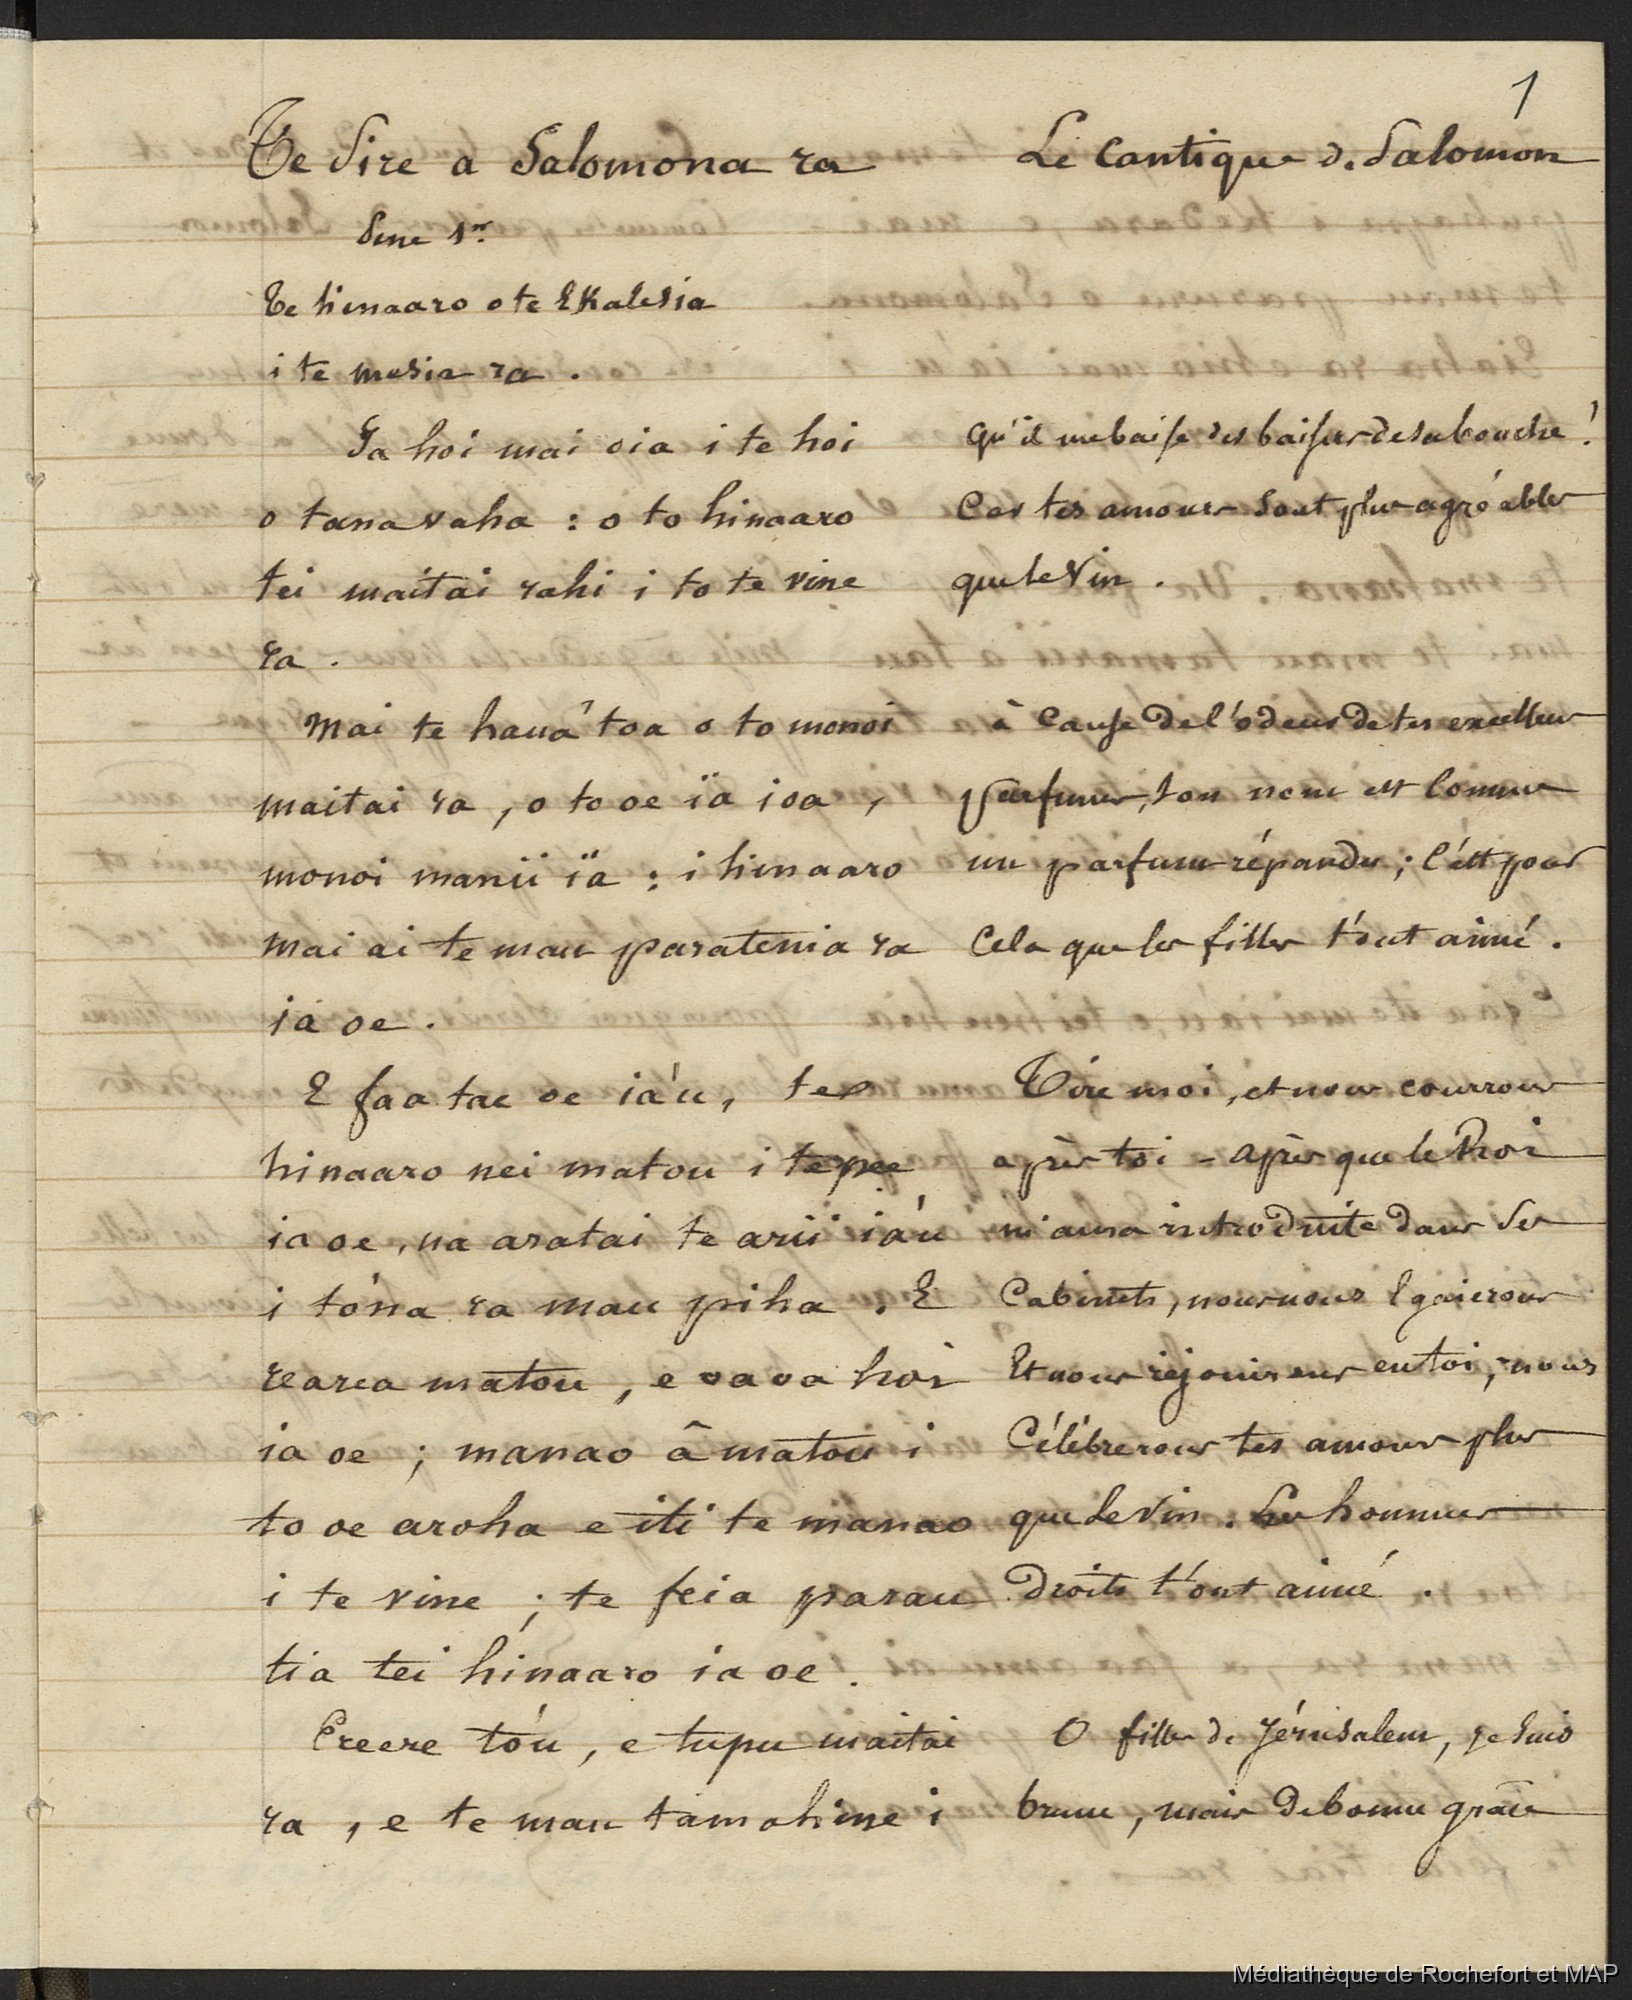 1
Te Sire a Salomona ra
Le Cantique de Salomon
Sire 1er
Te hinaaro o te Ekalesia
i te mesia ra .
Ia hoi mai oia i te hoi
o tana vaha : o to hinaaro
tei maitai rahi i to te vine
ra .
Mai te hauá toa o to monoi
maitai ra , o to oe ïa ioa ,
monoi manii ïa : i hinaaro
mai ai te mau paratenia ra
ia oe .
E faa tae oe ia'u , te
hinaaro nei matou i te pee
ia oe , na aratai te arii ia'u
i tóna ra mau piha . E
rearea matou , e oaoa hoi
ia oe ; manao â matou i
to oe aroha e iti te manao
i te vine ; te feia parau
tia tei hinaaro ia oe .
Ereere tóu , e tupu maitai
ra , e te mau tamahine i
Qu'il me baise des baisers de sa bouche !
Car tes amours sont plus agréables
que le Vin .
à Cause de l'odeur de tes excellens
parfums, ton nom est Comme
un parfum répandu ; C'est pour
Cela que les filles t'ont aimé .
Tire moi , et nous courrons
après toi - après que le Roi
m'aura introduite dans Ses
Cabinets , nous nous Egaierons
Et nous réjouirons en toi ; nous
Célébrerons tes amours plus
que le Vin . Les hommes
droits t'ont aimé .
O filles de Jérusalem , je suis
brune , mais de bonne grâce
Médiathèque de Rochefort et MAP